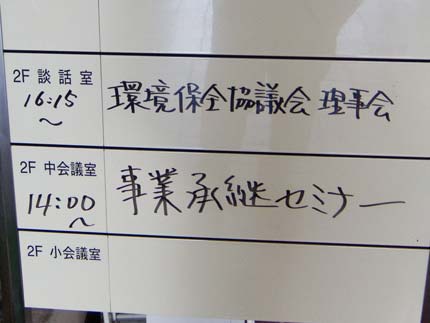 2F 談話室
16:15
～
環境保全協議会 理事会
2F 中会議室
14:00
～
事業承継セミナー
2F 小会議室